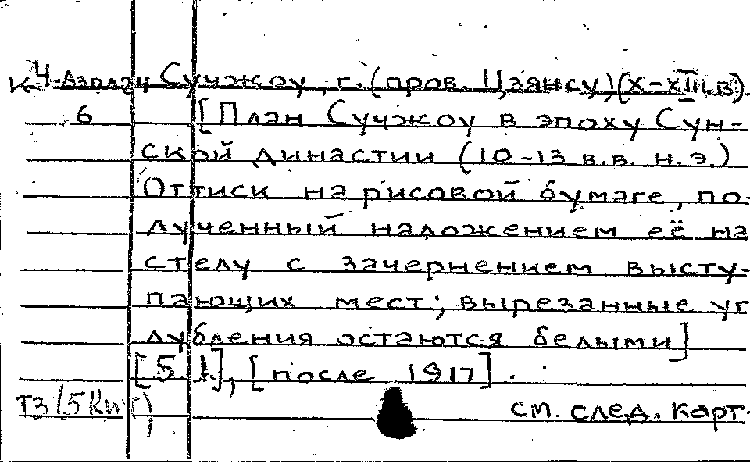 К4-Азплан Сучжоу, г. (пров. Цзянсу) (X-XIII в)
6 [План Сучжоу в эпоху Сун-
ской династии (10-13 в.в. н.э.)
Оттиск на рисовой бумаге, по-
лученный наложением её на
стелу с зачернением высту-
пающих мест; вырезанные уг
лубления остаются белыми]
[после 1917].
см. след. карт.